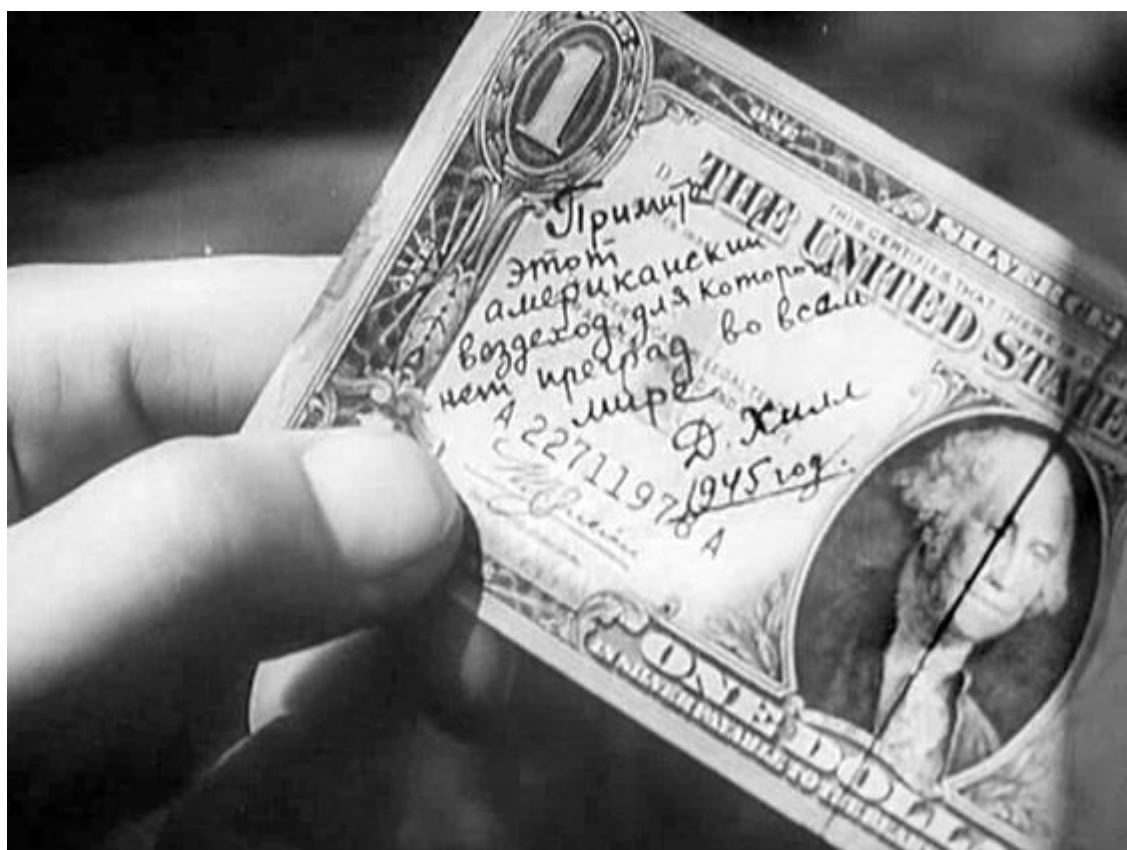 1
ONE
SILVER CE
THIS CERTIFIES THAT THERE IS
THE UNITED STATES
Примите
этот
американский
вездеход, для которого
нет преград во всем
мире
Д. Хилл
1945 год.
A 22711978 A
ONE DOLL
IN SILVER PAYABLE TO THE BEAR